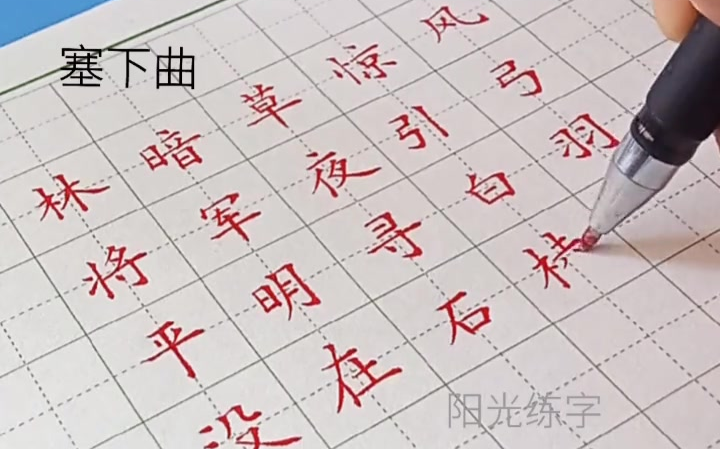 塞下曲
林暗草惊风
将军夜引弓
平明寻白羽
没在石
阳光练字